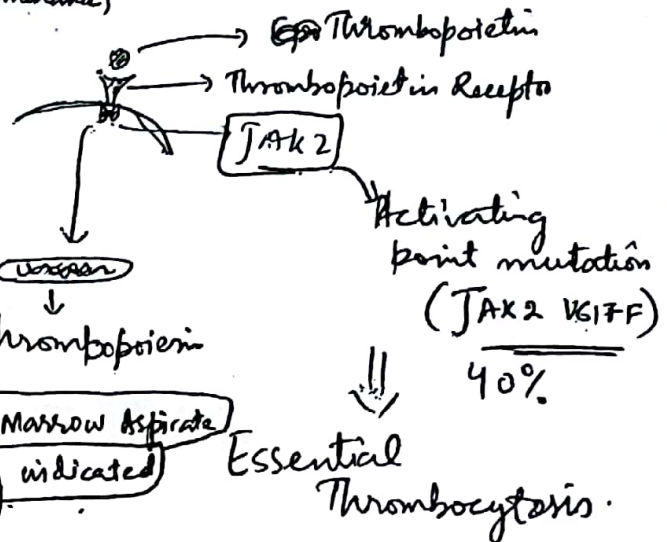 Thrombopoietin
Thrombopoietin Recepto
JAK2
Activating
point mutation
(JAK2 V617F)
40%
hrombopoiesis
Marrow Aspirate
indicated
Essential
Thrombocytosis.